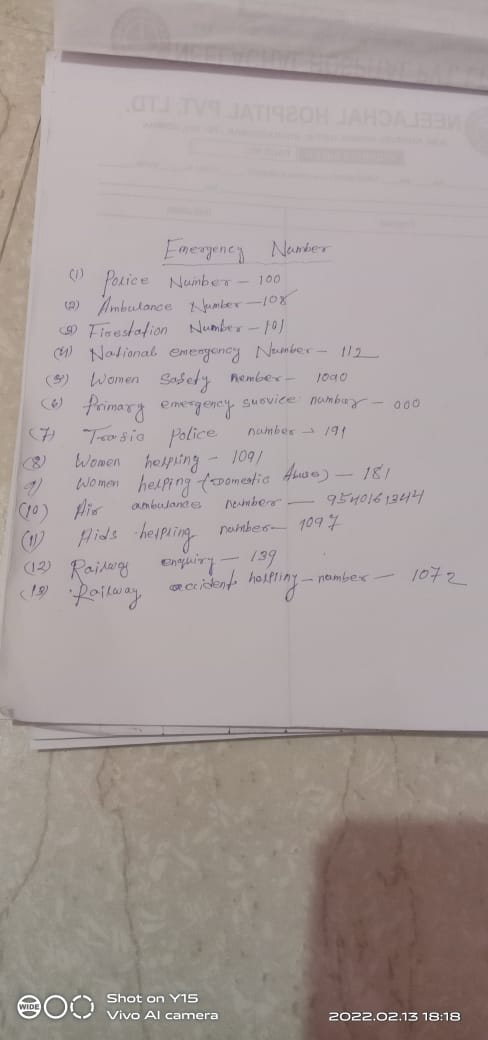 NEELACHAL HOSPITAL PVT. LTD.
Emergency Number
(1) Police Number - 100
(2) Ambulance Number - 108
(3) Firestation Number - 101
(4) National emergency Number - 112
(5) Women Safety nember - 1090
(6) Primary emergency survice number - 000
(7) Trafic Police number → 191
(8) Women helpling - 1091
9) Women helping (Domestic Abuse) - 181
(10) Air ambulance number - 9540161344
(11) Aids helpling number - 1097
(12) Railway enquiry - 139
(13) Railway accident helpliny - number - 1072
WIDE
Shot on Y15
Vivo AI camera
2022.02.13 18:18